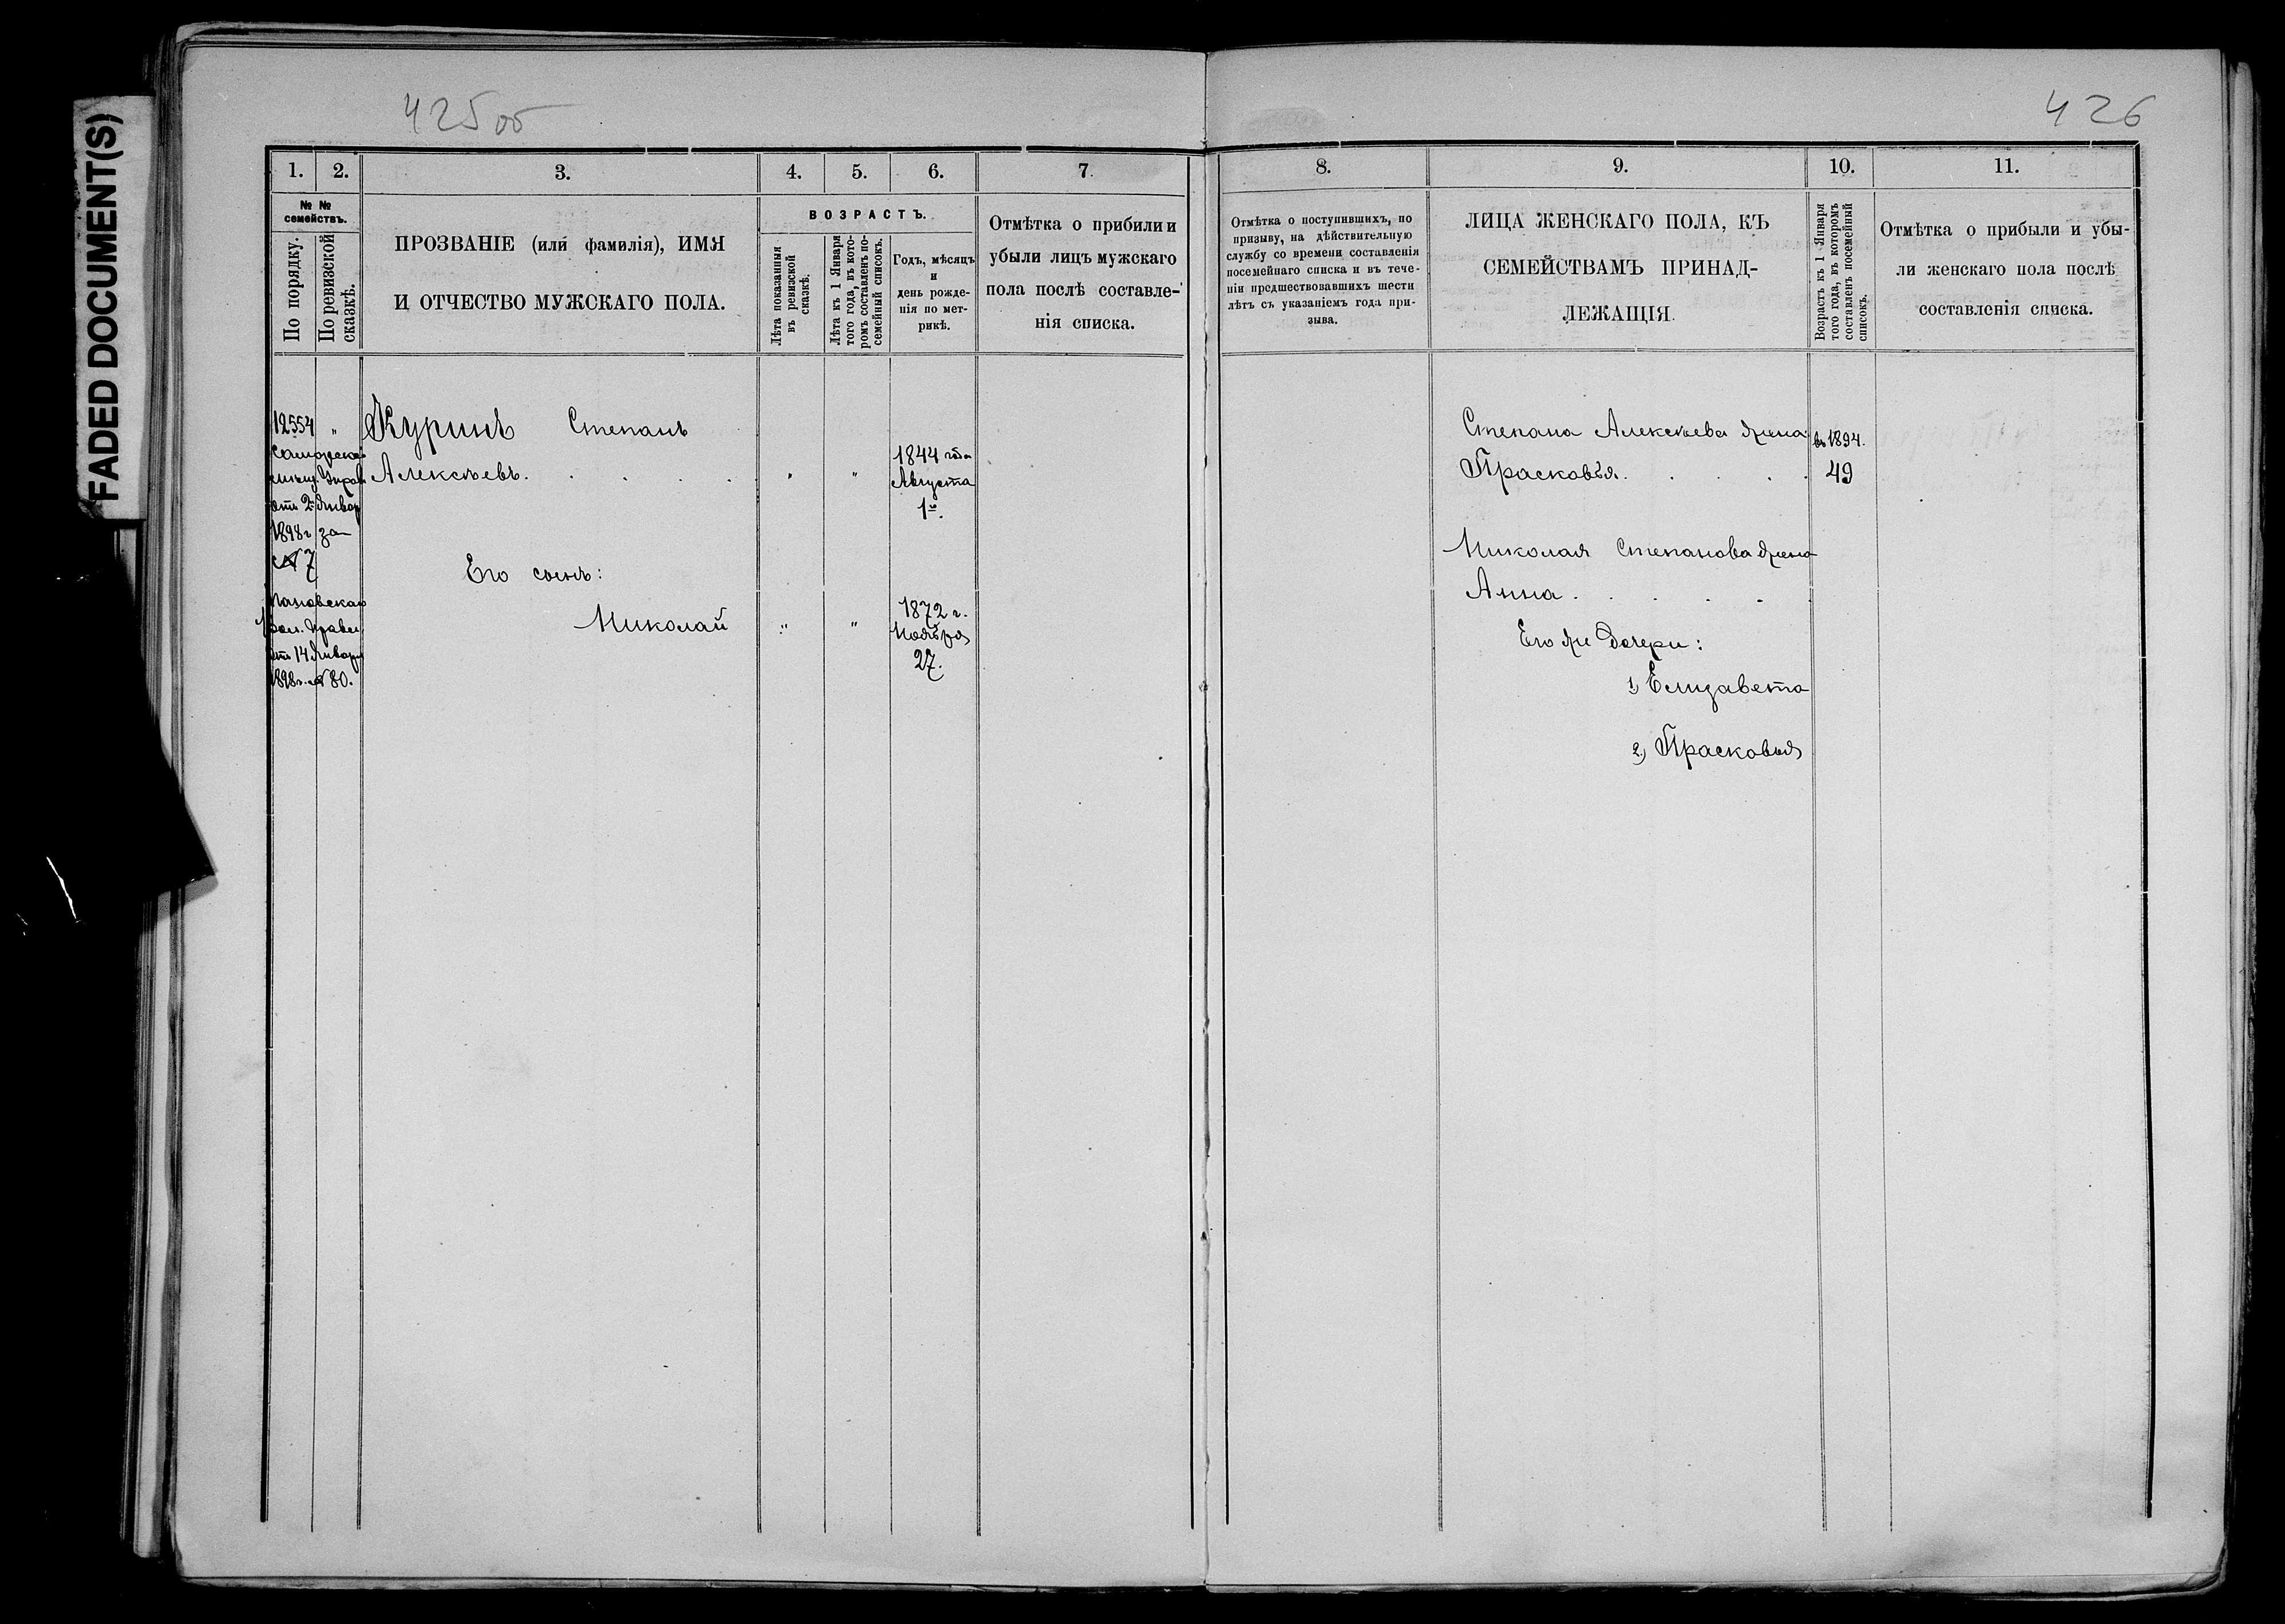 FADED DOCUMENT(S)
425 об
426
1. 2. 3. 4. 5. 6. 7.
№ № семействъ.
По порядку.
По ревизской сказкѣ.
ПРОЗВАНІЕ (или фамилія), ИМЯ
И ОТЧЕСТВО МУЖСКАГО ПОЛА.
ВОЗРАСТЪ.
Лѣта показанныя въ ревизской сказкѣ.
Лѣта къ 1 Января того года, въ которомъ составленъ посемейный списокъ.
Годъ, мѣсяцъ
и
день рожде-
нія по мет-
рикѣ.
Отмѣтка о прибили и
убыли лицъ мужскаго
пола послѣ составле-
нія списка.
12554 „ Куринъ Степанъ
Алексѣевъ. . . . . „ „
1844 года
Августа
1го.
отъ 2 Январ
1898 г за
№ 7
Его сынъ:
Николай „ „
1872 г.
Ноября
27.
Вол. Правл.
отъ 14 Января
1898 г. № 80.
8. 9. 10. 11.
Отмѣтка о поступившихъ, по
призыву, на дѣйствительную
службу со времени составленія
посемейнаго списка и въ тече-
ніи предшествовавшихъ шести
лѣтъ съ указаніемъ года при-
зыва.
ЛИЦА ЖЕНСКАГО ПОЛА, КЪ
СЕМЕЙСТВАМЪ ПРИНАД-
ЛЕЖАЩІЯ.
Возрастъ къ 1 Января
того года, въ которомъ
составленъ посемейный
списокъ.
Отмѣтка о прибыли и убы-
ли женскаго пола послѣ
составленія списка.
Степана Алексѣева жена въ 1894.
Прасковья. . . . . 49
Николая Степанова жена
Анна. . . . .
Его же дочери:
1) Елизавета
2) Прасковья